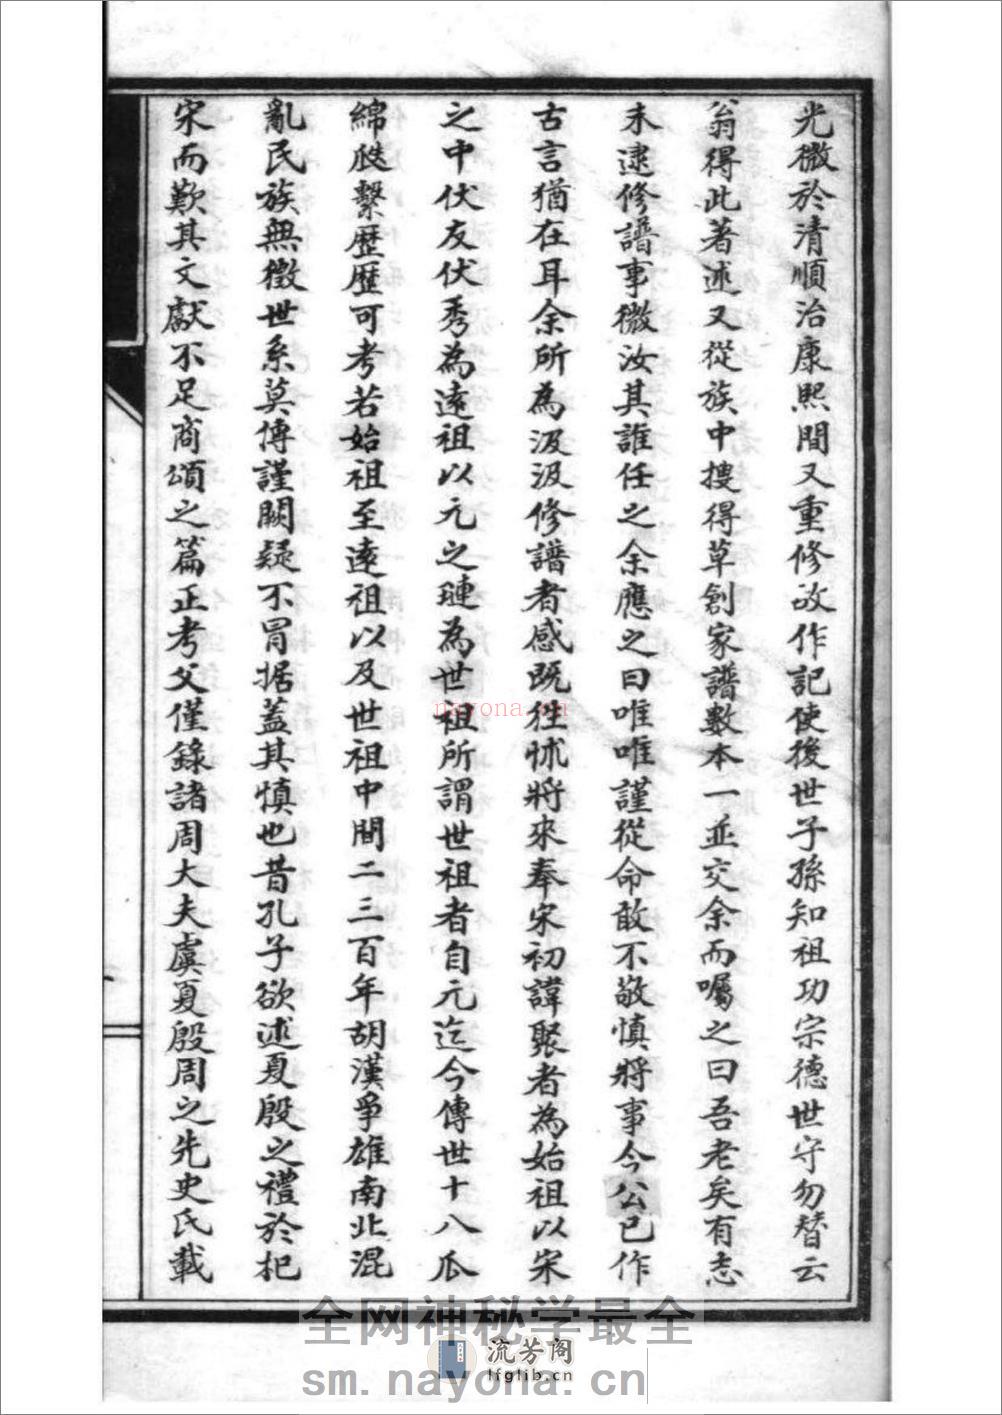 光微於清順治康熙間又重修故作記使後世子孫知祖功宗德世守勿替云
翁得此著述又從族中搜得草創家譜數本一並交余而囑之曰吾老矣有志
未逮修譜事微汝其誰任之余應之曰唯唯謹從命敢不敬慎將事今公已作
古言猶在耳余所為汲汲修譜者感既往怵將來奉宋初諱聚者為始祖以宋
之中伏友伏秀為遠祖以元之璉為世祖所謂世祖者自元迄今傳世十八瓜
綿瓞繫歷歷可考若始祖至遠祖以及世祖中間二三百年胡漢爭雄南北混
亂民族無徵世系莫傳謹闕疑不冒据蓋其慎也昔孔子欲述夏殷之禮於杞
宋而歎其文獻不足商頌之篇正考父僅錄諸周大夫虞夏殷周之先史氏載
nayona.cn
全网神秘学最全
流芳阁
lfglib.cn
sm.nayona.cn